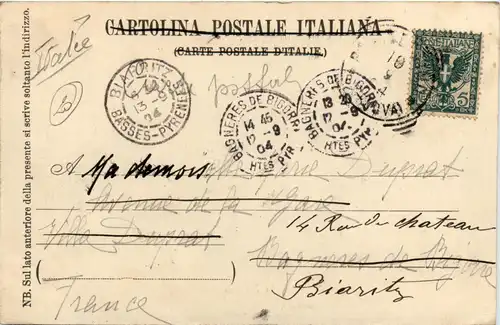 CARTOLINA POSTALE ITALIANA
(CARTE POSTALE D'ITALIE.)
NB. Sul lato anteriore della presente si scrive soltanto l'indirizzo.
BIARRITZ
13 -9
04
BASSES-PYRENEES
BAGNERES DE BIGORRE
14 45
12 -9
04
HTES PYR
BAGNERES DE BIGORRE
13
12 -9
04
HTES PYR
POSTE ITALIANE
5
A Mademoiselle Marie Duprat
Avenue de la Gare
Villa Duprat
14 Rue du chateau
Bagneres de Bigorre
Biaritz
France